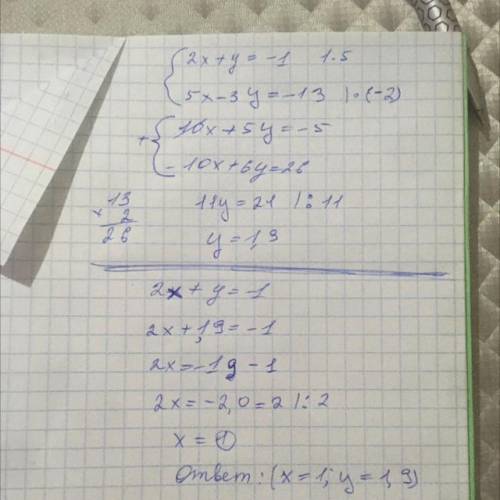 2x+y=-1 |·5
5x-3y=-13 |·(-2)
+ 10x+5y=-5
-10x+6y=26
13
× 2
26
11y=21 |:11
y=1,9
2x+y=-1
2x+1,9=-1
2x=-1,9-1
2x=-2,0=2 |:2
x=1
Ответ: (x=1; y=1,9)